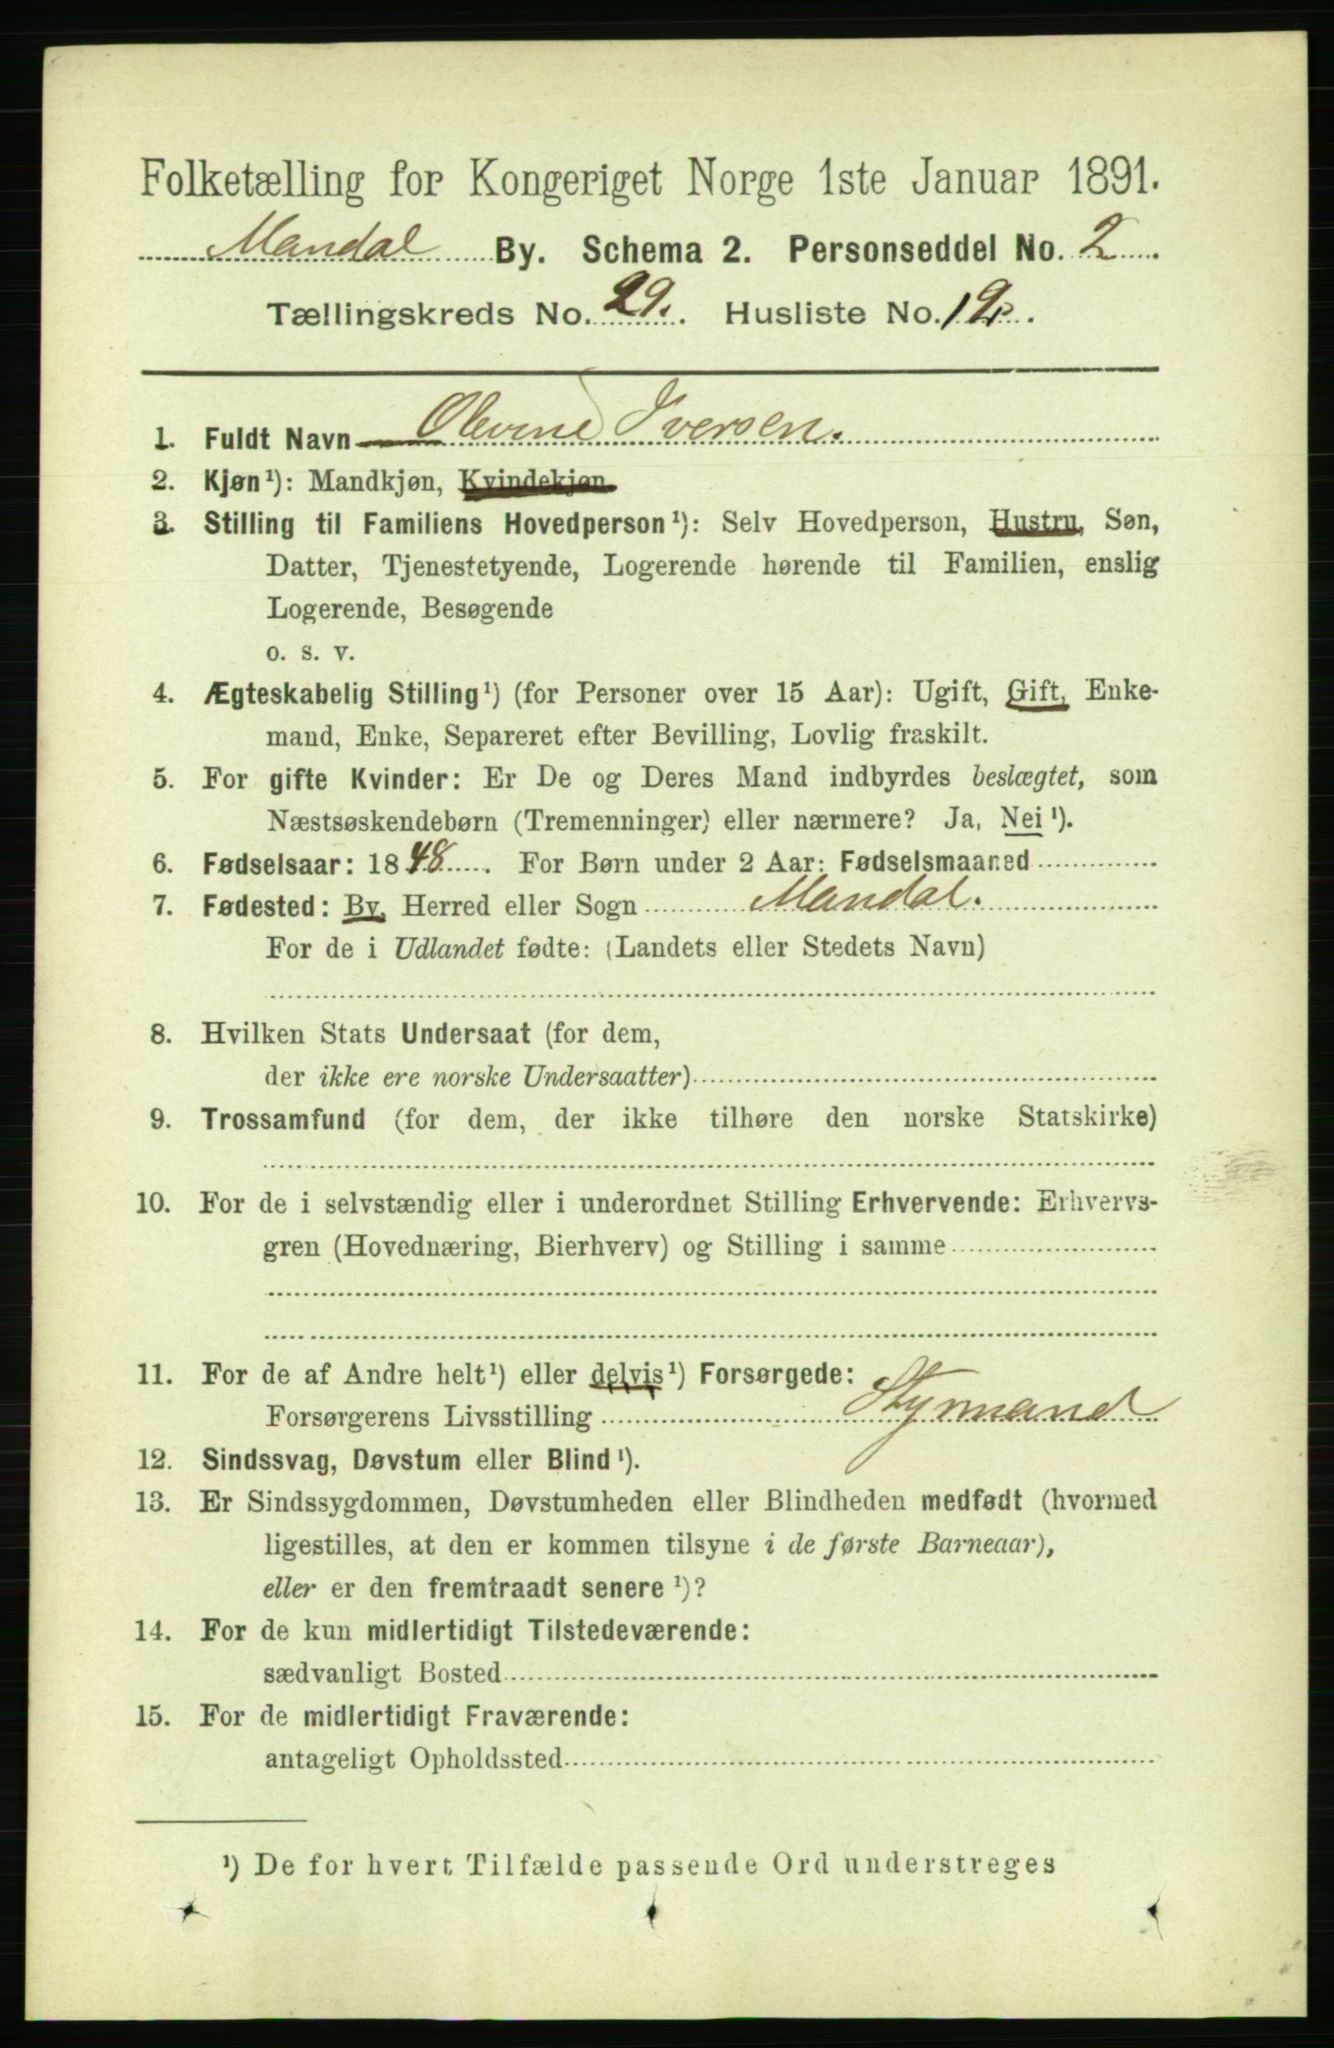 Folketælling for Kongeriget Norge 1ste Januar 1891.
Mandal By. Schema 2. Personseddel No. 2
Tællingskreds No. 29. Husliste No. 12.
1. Fuldt Navn Olevine Iversen.
2. Kjøn¹): Mandkjøn, Kvindekjøn
3. Stilling til Familiens Hovedperson¹): Selv Hovedperson, Hustru, Søn,
Datter, Tjenestetyende, Logerende hørende til Familien, enslig
Logerende, Besøgende
o. s. v.
4. Ægteskabelig Stilling¹) (for Personer over 15 Aar): Ugift, Gift, Enke-
mand, Enke, Separeret efter Bevilling, Lovlig fraskilt.
5. For gifte Kvinder: Er De og Deres Mand indbyrdes beslægtet, som
Næstsøskendebørn (Tremenninger) eller nærmere? Ja, Nei¹).
6. Fødselsaar: 1848. For Børn under 2 Aar: Fødselsmaaned
7. Fødested: By, Herred eller Sogn Mandal.
For de i Udlandet fødte: (Landets eller Stedets Navn)
8. Hvilken Stats Undersaat (for dem,
der ikke ere norske Undersaatter)
9. Trossamfund (for dem, der ikke tilhøre den norske Statskirke)
10. For de i selvstændig eller i underordnet Stilling Erhvervende: Erhvervs-
gren (Hovednæring, Bierhverv) og Stilling i samme
11. For de af Andre helt¹) eller delvis¹) Forsørgede:
Forsørgerens Livsstilling Stymand
12. Sindssvag, Døvstum eller Blind¹).
13. Er Sindssygdommen, Døvstumheden eller Blindheden medfødt (hvormed
ligestilles, at den er kommen tilsyne i de første Barneaar),
eller er den fremtraadt senere¹)?
14. For de kun midlertidigt Tilstedeværende:
sædvanligt Bosted
15. For de midlertidigt Fraværende:
antageligt Opholdssted
¹) De for hvert Tilfælde passende Ord understreges